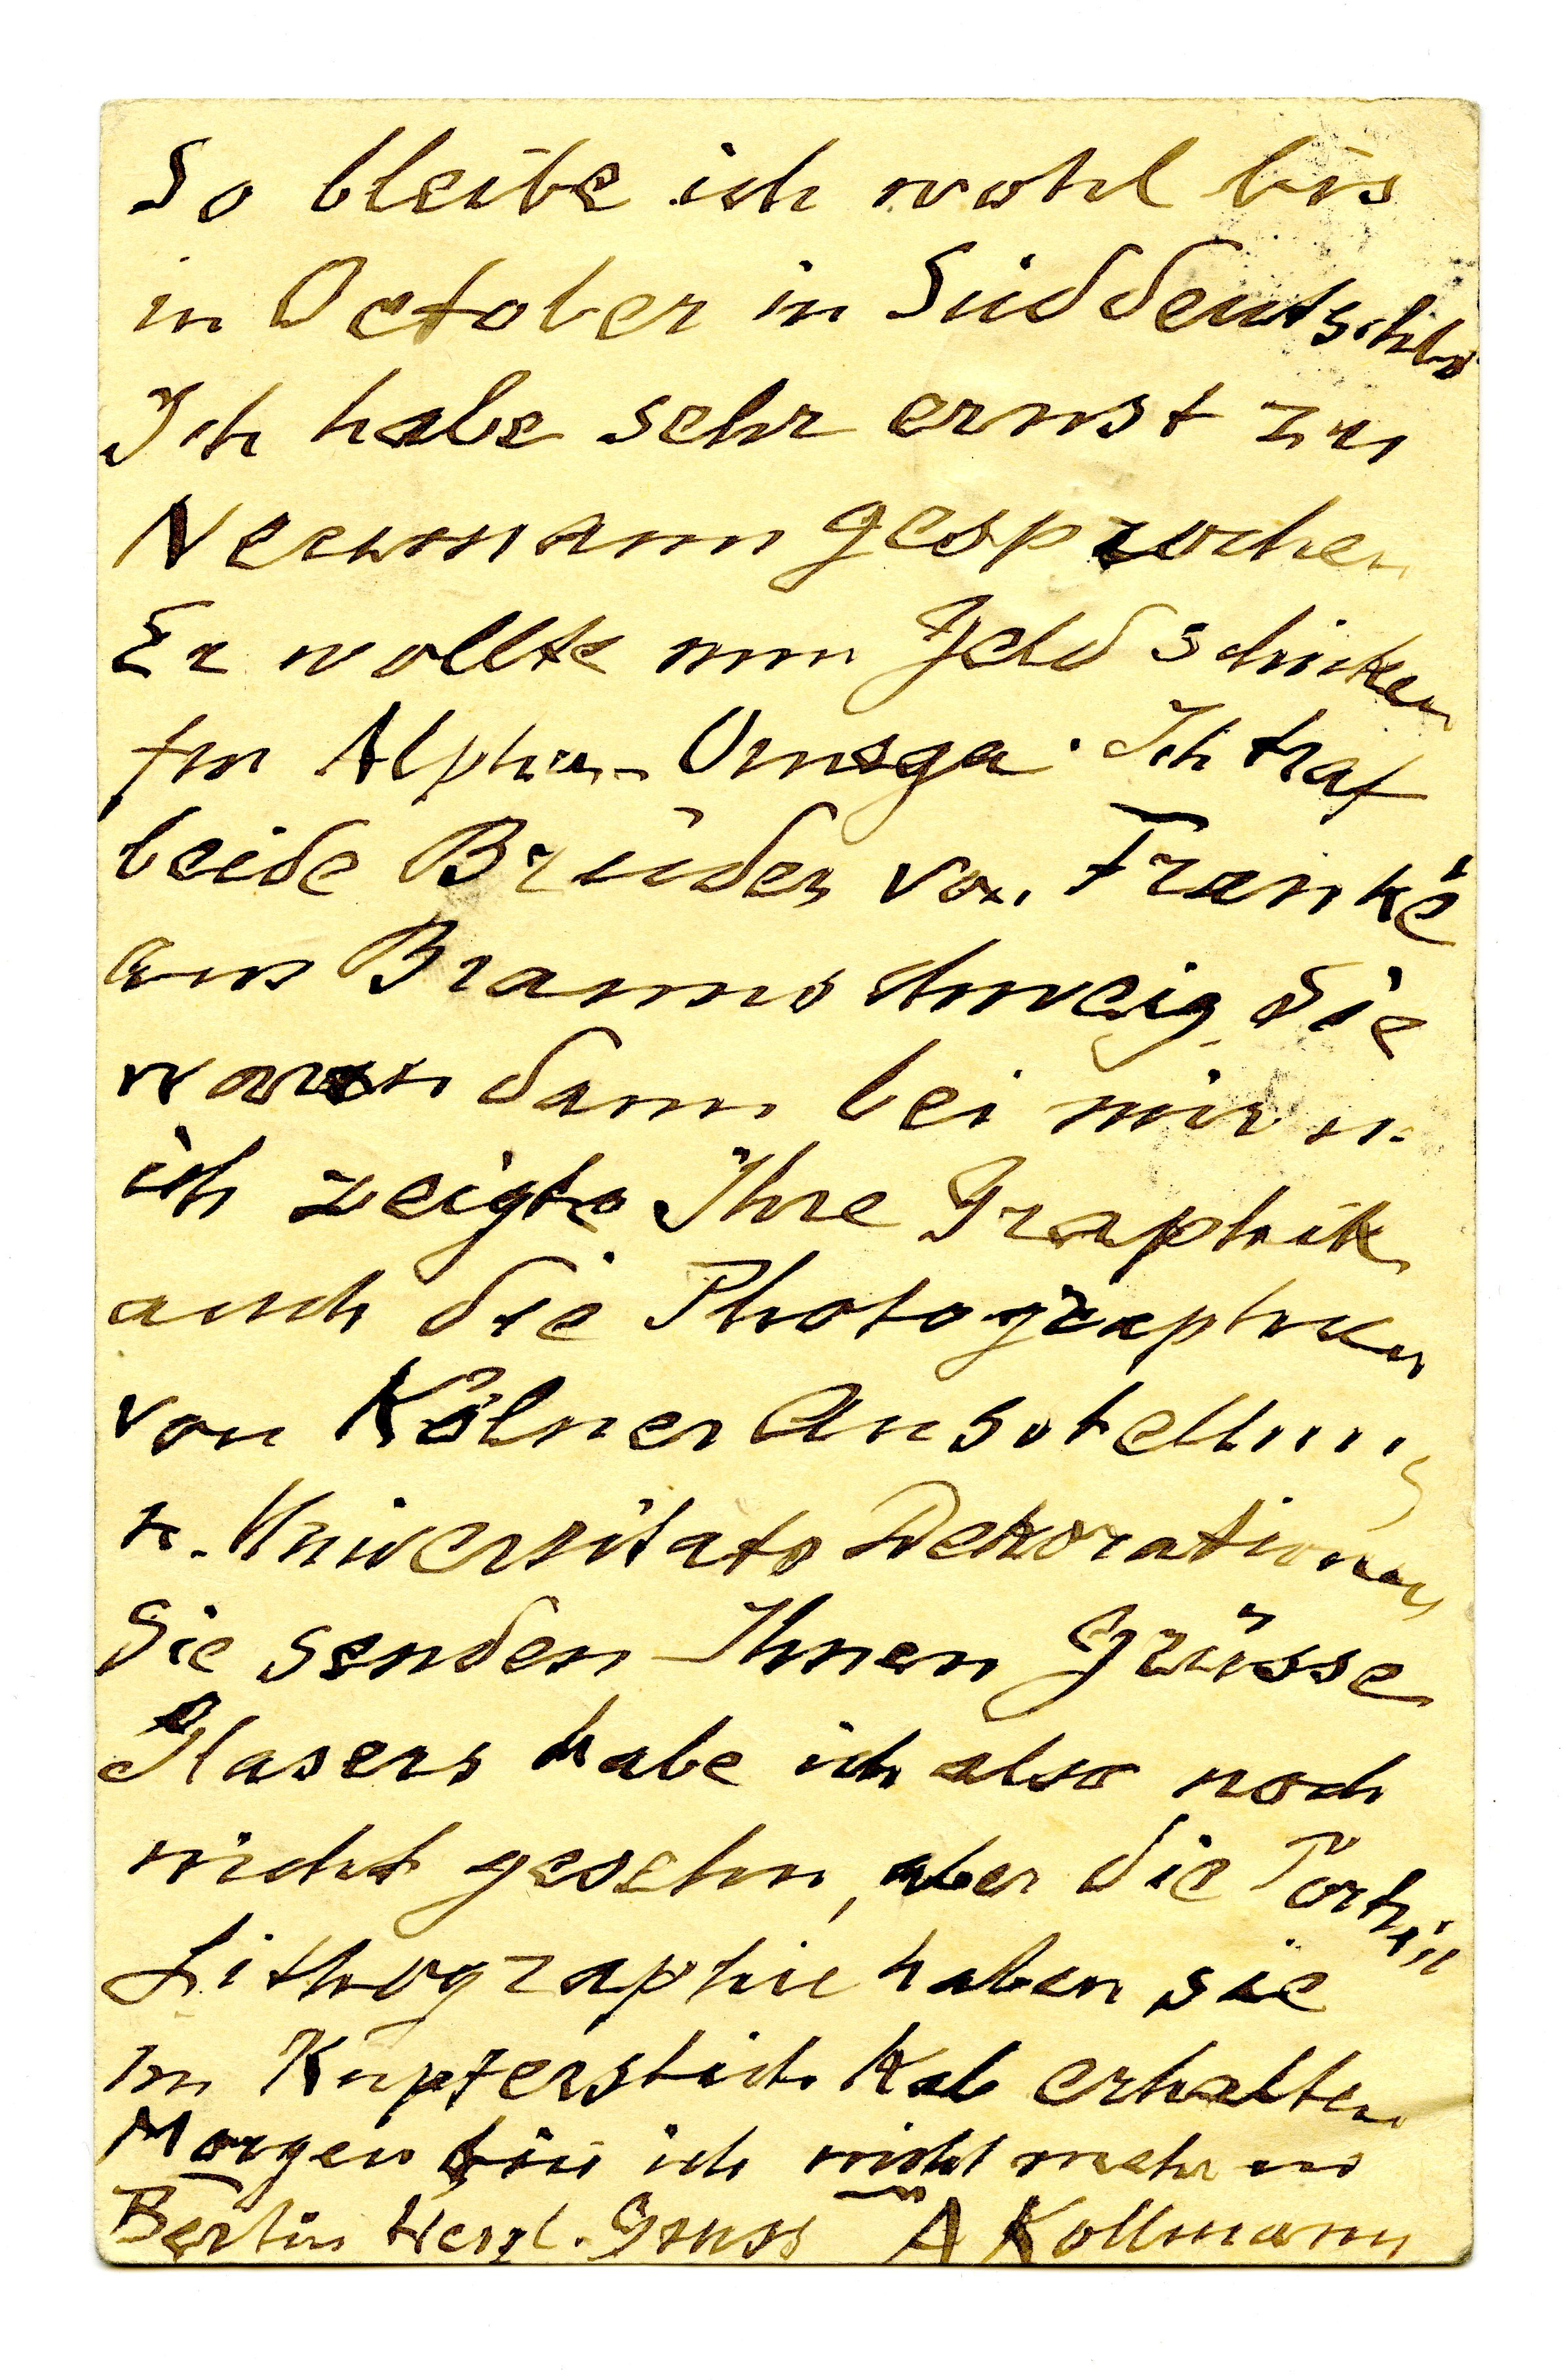 So bleibe ich wohl bis
in October in Süddeutschld
Ich habe sehr ernst zu
Neumann gesprochen
Er wollte nun Geld schicken
für Alpha-Omega. Ich traf
beide Brüder von Franke
aus Braunschweig, die
waren dann bei mir u.
ich zeigte Ihre Graphik
auch die Photographien
von Kölner Ausstellung
u. Universitäts Dekorationen
Sie senden Ihnen Grüsse
Glasers habe ich also noch
nicht gesehn, aber die Porträt
Lithographie haben sie
im Kupferstich Kab erhalten
Morgen bin ich nicht mehr in
Berlin Herzl. Gruss A Kollmann